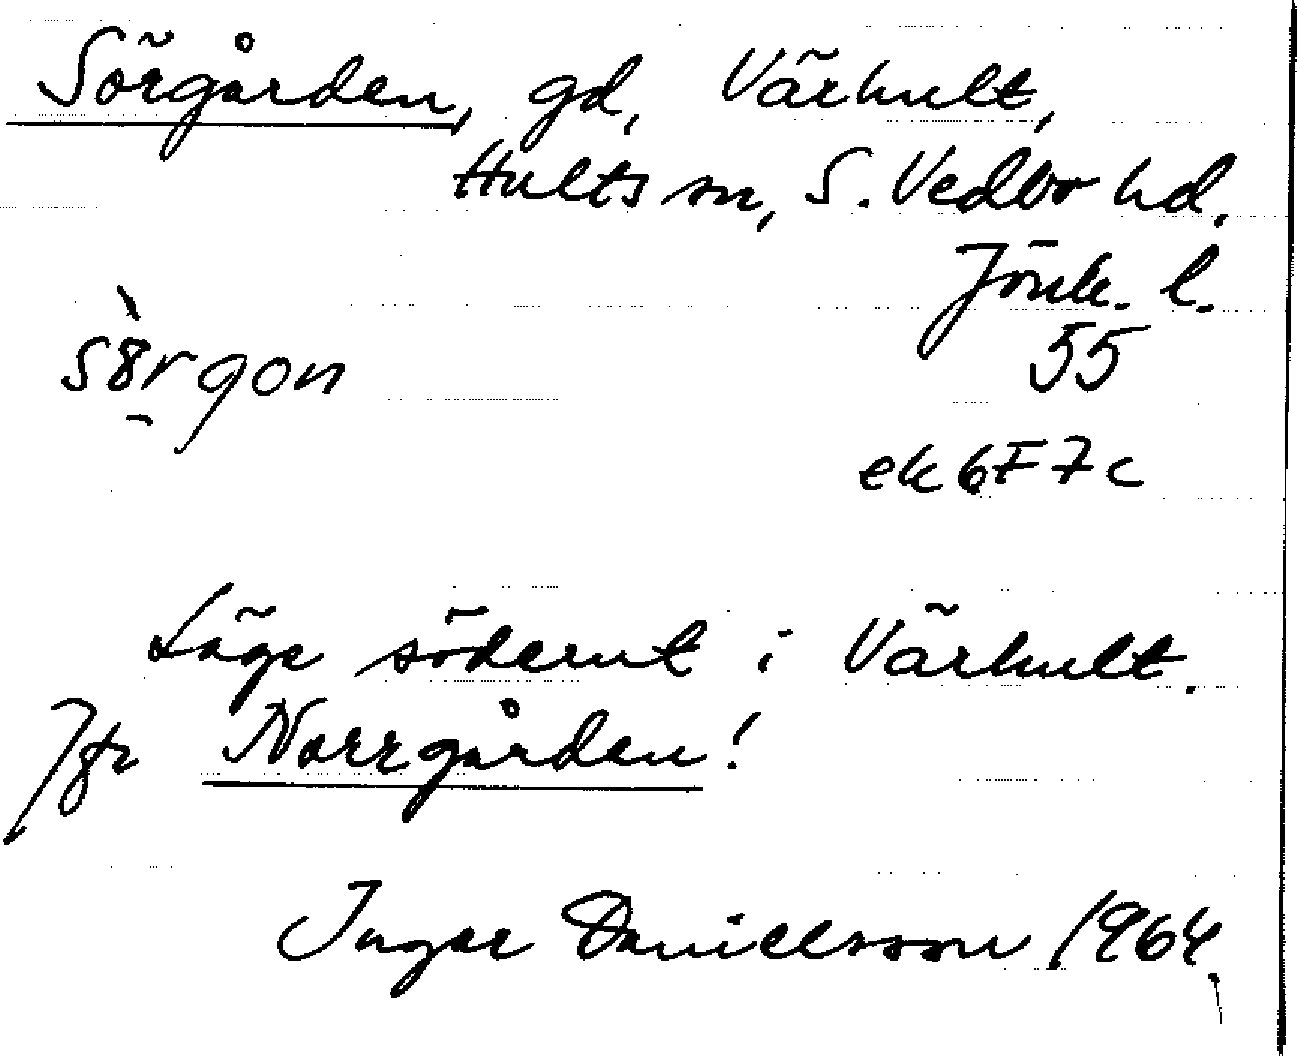 Sörgården, gd, Värhult,
Hults sn, S. Vedbo hd.
Jönk. l.
sör gon
55
ek 6F7c
Läge söderut i Värhult.
Jfr Norrgården!
Ingar Danielsson 1964.